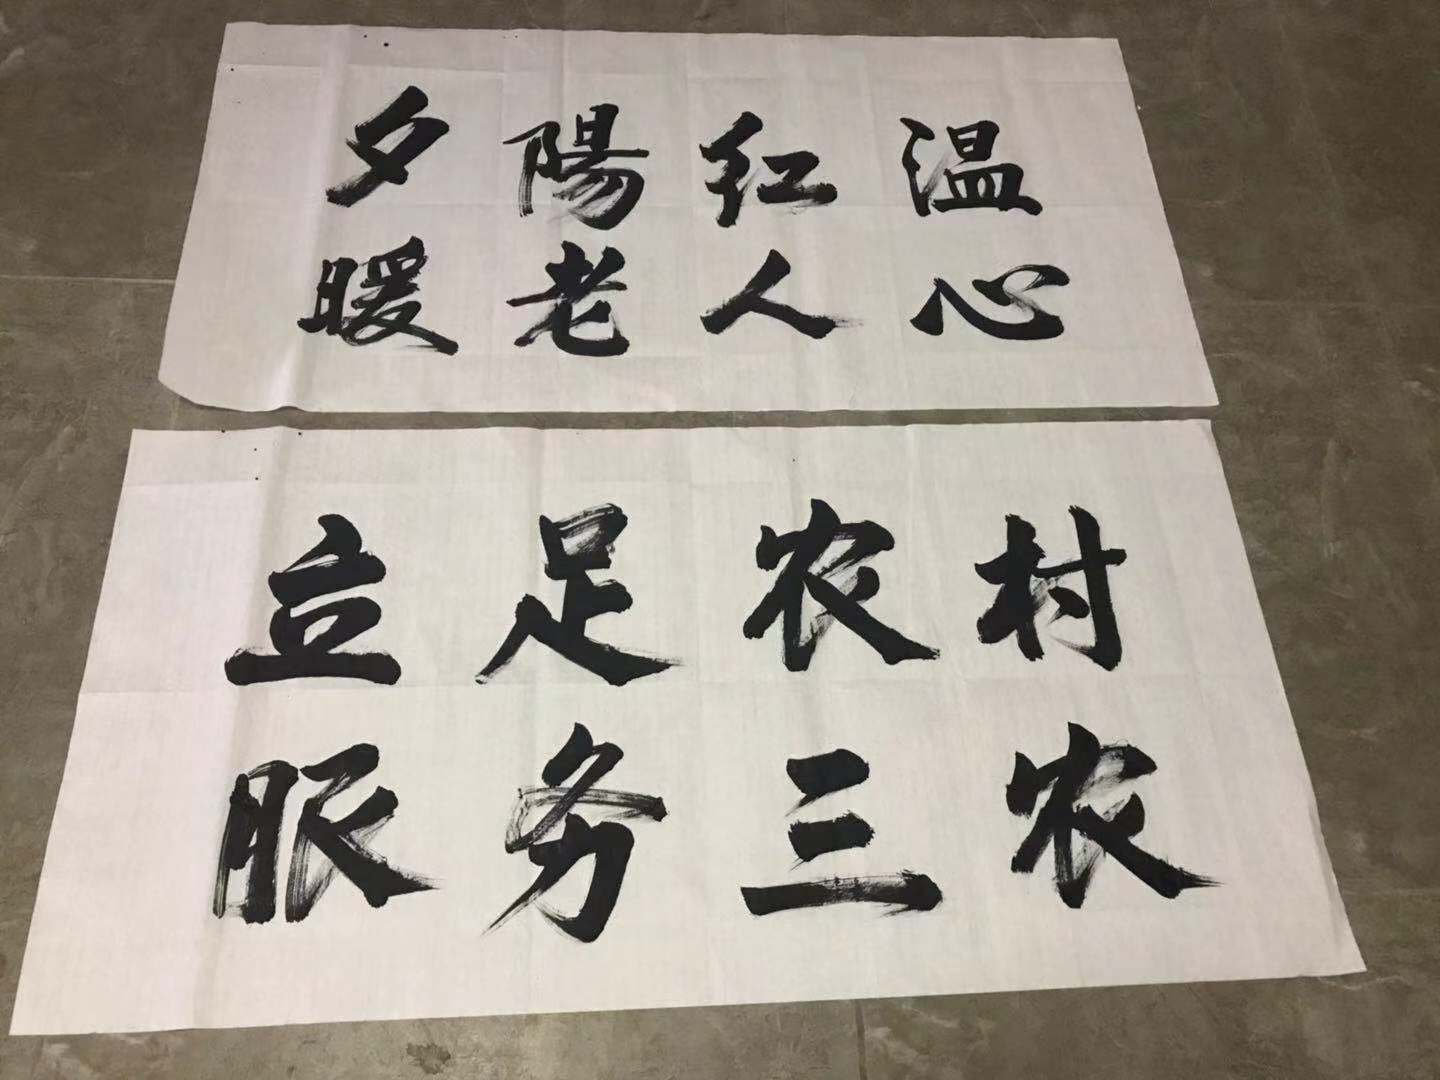 夕陽红温
暖老人心
立足农村
服务三农